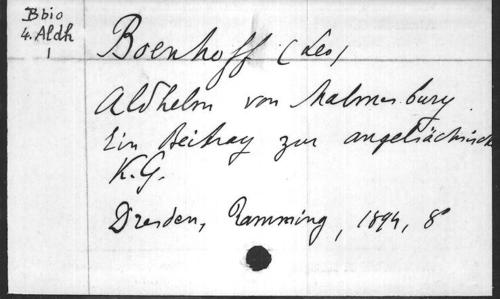 Bbio
4. Aldh
1
Boenhoff (Leo)
Aldhelm von Malmesbury.
Ein Beitrag zur angelsächsisch
K.G.
Dresden, Ramming, 1894, 8°